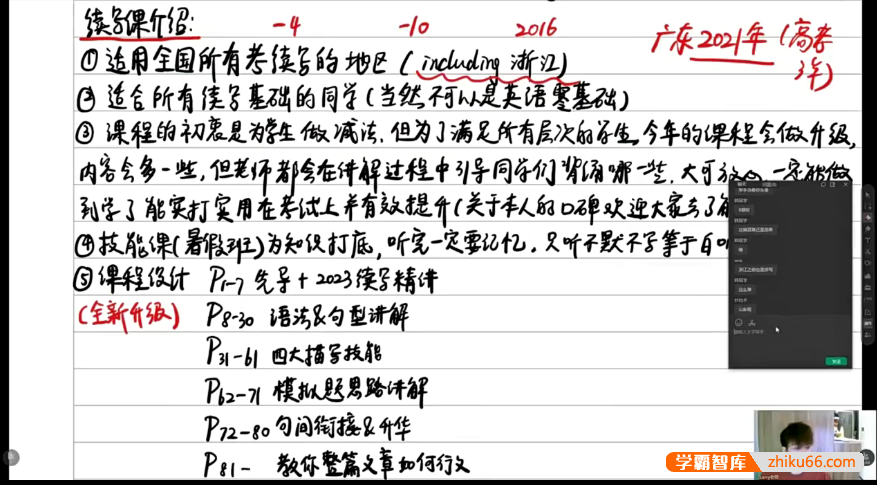 续写课介绍:
-4 -10 2016
广东2021年(高考
3年)
①适用全国所有考续写的地区(including 浙江)
②适合所有续写基础的同学(当然不可以是英语零基础)
③课程的初衷是为学生做减法,但为了满足所有层次的学生,今年的课程会做升级,
内容会多一些,但老师都会在讲解过程中引导同学们背诵哪一些,大可放心,一定能做
到学了能实打实用在考试上并有效提升(关于本人的口碑欢迎大家去了解
④技能课(暑假班)为知识打底,听完一定要记忆,只听不默不写等于白听
⑤课程设计 P1-7 先导+2023续写精讲
(全新升级) P8-30 语法&句型讲解
P31-61 四大描写技能
P62-71 模拟题思路讲解
P72-80 句间衔接&升华
P81- 教你整篇文章如何行文
学霸智库 zhiku66.com